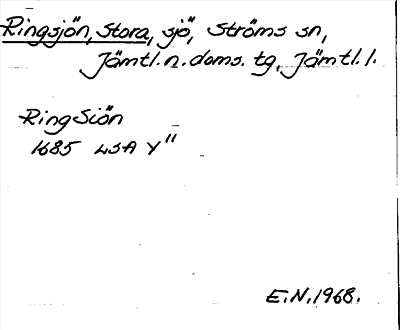 Ringsjön, Stora, sjö, Ströms sn,
Jämtl. n. doms. tg, Jämtl. l.
RingSiön
1685 LSA Y"
E.N. 1968.